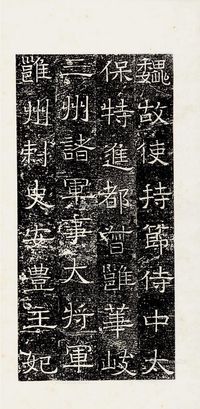 魏故使持節侍中太
保特進都督雝華岐
三州諸軍事大將軍
雝州刺史安豐王妃